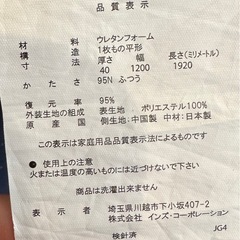 品質表示
材質 ウレタンフォーム
構造 1枚もの平形
厚さ 幅 長さ(ミリメートル)
寸法 40 1200 1920
かたさ 95N ふつう
復元率 95%
外装生地の組成 表生地 ポリエステル100%
原産国 側生地:中国製 中材:日本製
表示は家庭用品品質表示法によるものです
● 使用上の注意
火または温度の高いものには近づけないで下さい
商品は洗濯出来ません
埼玉県川越市下小坂407-2
株式会社 インズ・コーポレーション
検針済 JG4